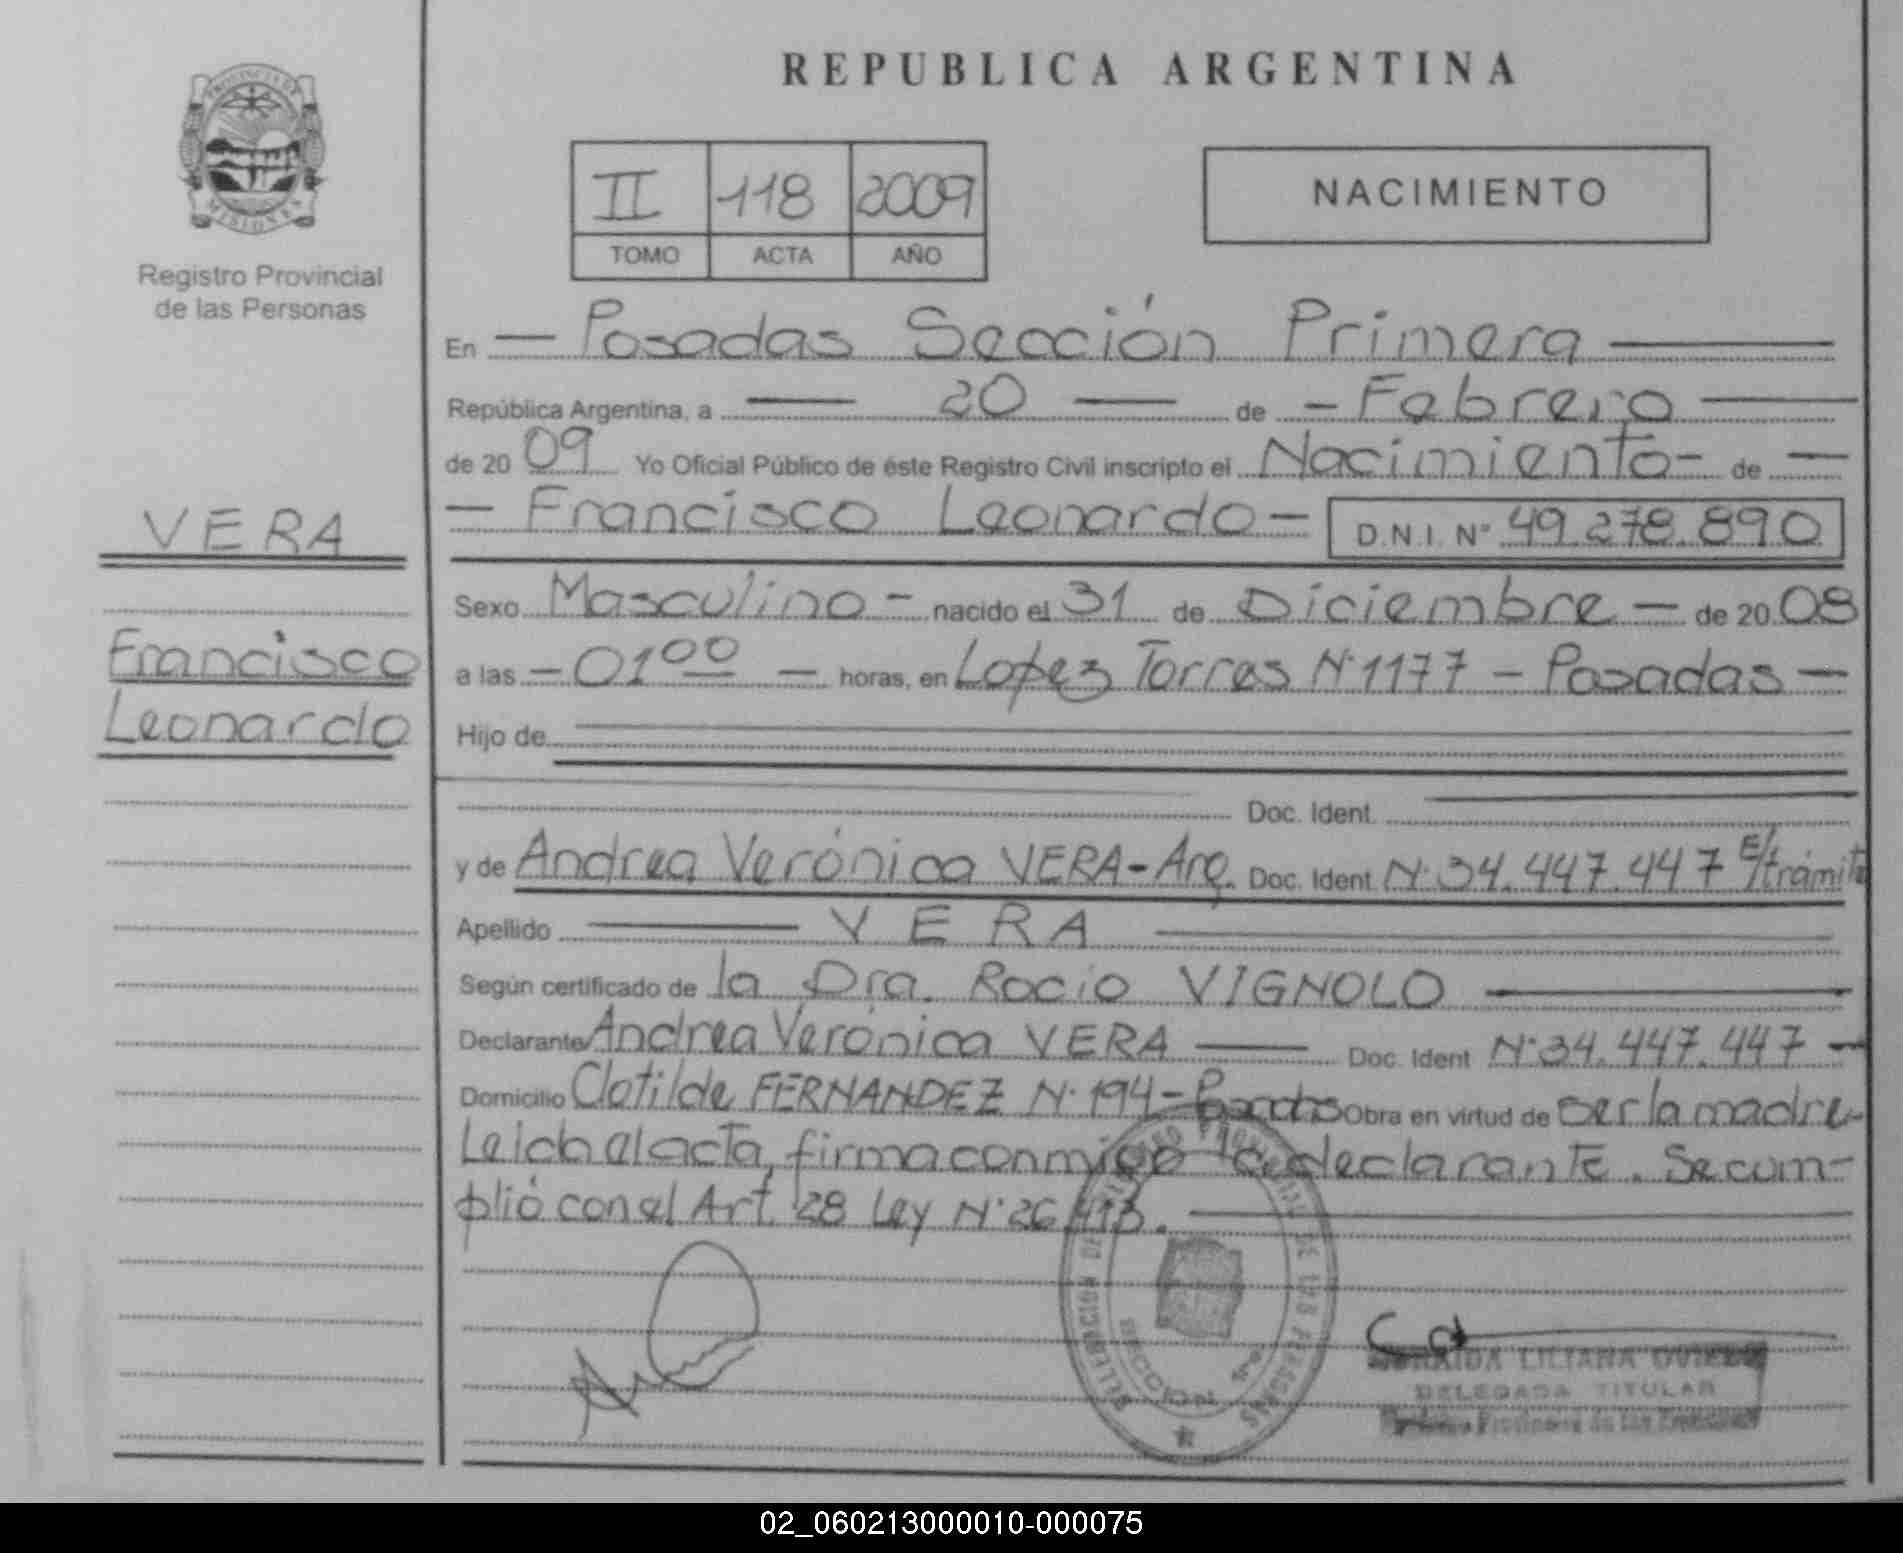 PROVINCIA DE
MISIONES
Registro Provincial
de las Personas
VERA
Francisco
Leonardo
REPUBLICA ARGENTINA
II 118 2009
TOMO ACTA AÑO
NACIMIENTO
En — Posadas Sección Primera —
República Argentina, a — 20 — de - Febrero —
de 20 09 Yo Oficial Público de éste Registro Civil inscripto el Nacimiento - de —
— Francisco Leonardo — D.N.I. N° 49.278.890
Sexo Masculino - nacido el 31 de Diciembre — de 20 08
a las - 01 00 — horas, en Lopez Torres N° 1177 - Posadas —
Hijo de
Doc. Ident.
y de Andrea Verónica VERA - Arg. Doc. Ident N° 34.447.447 E/trámite
Apellido — VERA —
Según certificado de la Dra. Rocio VIGNOLO —
Declarante Andrea Verónica VERA — Doc. Ident N° 34.447.447 —
Domicilio Clotilde FERNANDEZ N° 194 - Posadas Obra en virtud de ser la madre -
Leida el acta, firma conmigo declarante. Se cum-
plió con el Art. 28 Ley N° 26.413. —
DELEGACION DEL REGISTRO PROVINCIAL DE LAS PERSONAS
SECCION 1ra
LILIANA OVIEDO
DELEGADA TITULAR
Provincial de las Personas
02_060213000010-000075